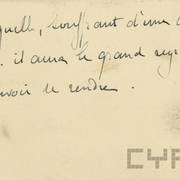 quelle, souffrant d'une
. il aura le grand regr
voir se rendre.
CYR